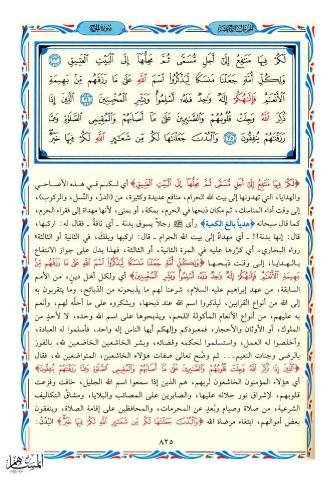 لَكُمْ فِيهَا مَنَافِعُ إِلَىٰ أَجَلٍ مُّسَمًّى ثُمَّ مَحِلُّهَا إِلَى الْبَيْتِ الْعَتِيقِ ﴿٣٣﴾
وَلِكُلِّ أُمَّةٍ جَعَلْنَا مَنسَكًا لِّيَذْكُرُوا اسْمَ اللَّهِ عَلَىٰ مَا رَزَقَهُم مِّن بَهِيمَةِ
الْأَنْعَامِ فَإِلَٰهُكُمْ إِلَٰهٌ وَاحِدٌ فَلَهُ أَسْلِمُوا وَبَشِّرِ الْمُخْبِتِينَ ﴿٣٤﴾ الَّذِينَ إِذَا
ذُكِرَ اللَّهُ وَجِلَتْ قُلُوبُهُمْ وَالصَّابِرِينَ عَلَىٰ مَا أَصَابَهُمْ وَالْمُقِيمِي الصَّلَاةِ وَمِمَّا
رَزَقْنَاهُمْ يُنفِقُونَ ﴿٣٥﴾ وَالْبُدْنَ جَعَلْنَاهَا لَكُم مِّن شَعَائِرِ اللَّهِ لَكُمْ فِيهَا خَيْرٌ
﴿لَكُمْ فِيهَا مَنَافِعُ إِلَىٰ أَجَلٍ مُّسَمًّى ثُمَّ مَحِلُّهَا إِلَى الْبَيْتِ الْعَتِيقِ﴾ أي لكم في هذه الأضاحي
والهدايا، التي تهدونها إلى بيت الله الحرام، منافع عديدة وكثيرة، من (الدرِّ، والنَّسل، والركوب)،
إلى وقت أداء المناسك، ثم مكان ذبحها في الحرم، بمكة، أو بمنى، لأنها مهداة إلى فقراء الحرم،
كما قال سبحانه ﴿هَدْيًا بَالِغَ الْكَعْبَةِ﴾ رأى ﷺ رجلاً يسوق بدنة ـ أي ناقةً ـ فقال له: اركبها،
قال: إنها بدنة!! ـ أي مهداةٌ إلى بيت الله الحرام ـ قال: اركبها ويلك، في الثانية أو الثالثة»
رواه البخاري، أي كرَّرها عليه في المرة الثانية، أو الثالثة، فهذا يدل على جواز الانتفاع
بالهدايا، إلى وقت ذبحها ﴿وَلِكُلِّ أُمَّةٍ جَعَلْنَا مَنسَكًا لِّيَذْكُرُوا اسْمَ اللَّهِ عَلَىٰ مَا رَزَقَهُم مِّن
بَهِيمَةِ الْأَنْعَامِ فَإِلَٰهُكُمْ إِلَٰهٌ وَاحِدٌ فَلَهُ أَسْلِمُوا وَبَشِّرِ الْمُخْبِتِينَ﴾ أي ولكل أهل دينٍ، من الأمم
السابقة، من عهد إبراهيم عليه السلام، شرعنا لهم ما يذبحونه من الذبائح، وما يتقربون به
إلى الله من أنواع القرابين، ليذكروا اسم الله عند ذبحها، ويشكروه على ما أحلَّه لهم، وأنعم
به عليهم، من أنواع الأنعام المأكولة اللحم، ويذبحوها على اسم الله وحده، لا لأحدٍ من
الملوك، أو الأوثان والأحجار، فمعبودكم وإلهكم أيها الناس إله واحد، فأسلموا له العبادة،
وأخلصوا له العمل، واستسلموا لحكمه وقضائه، وبشر الخاشعين الخاضعين لله، بالفوز
بالرضى وجنات النعيم... ثم وضَّح تعالى صفات هؤلاء الخاشعين، المتواضعين لله، فقال
﴿الَّذِينَ إِذَا ذُكِرَ اللَّهُ وَجِلَتْ قُلُوبُهُمْ وَالصَّابِرِينَ عَلَىٰ مَا أَصَابَهُمْ وَالْمُقِيمِي الصَّلَاةِ وَمِمَّا رَزَقْنَاهُمْ يُنفِقُونَ﴾
أي هؤلاء المؤمنون الخاشعون لربهم، هم الذين إذا سمعوا اسم الله الجليل، خافت وفزعت
قلوبهم، لإشراق نور جلاله عليها، والصابرين على المصائب والبلايا، ومشاقِّ التكاليف
الشرعية، من صلاة وصيام وبُعدٍ عن المحرمات، والمحافظين على إقامة الصلاة، وينفقون
بعض أموالهم، ابتغاء مرضاة الله ﴿وَالْبُدْنَ جَعَلْنَاهَا لَكُم مِّن شَعَائِرِ اللَّهِ لَكُمْ فِيهَا خَيْرٌ﴾ البُدْنُ:
٨٢٥